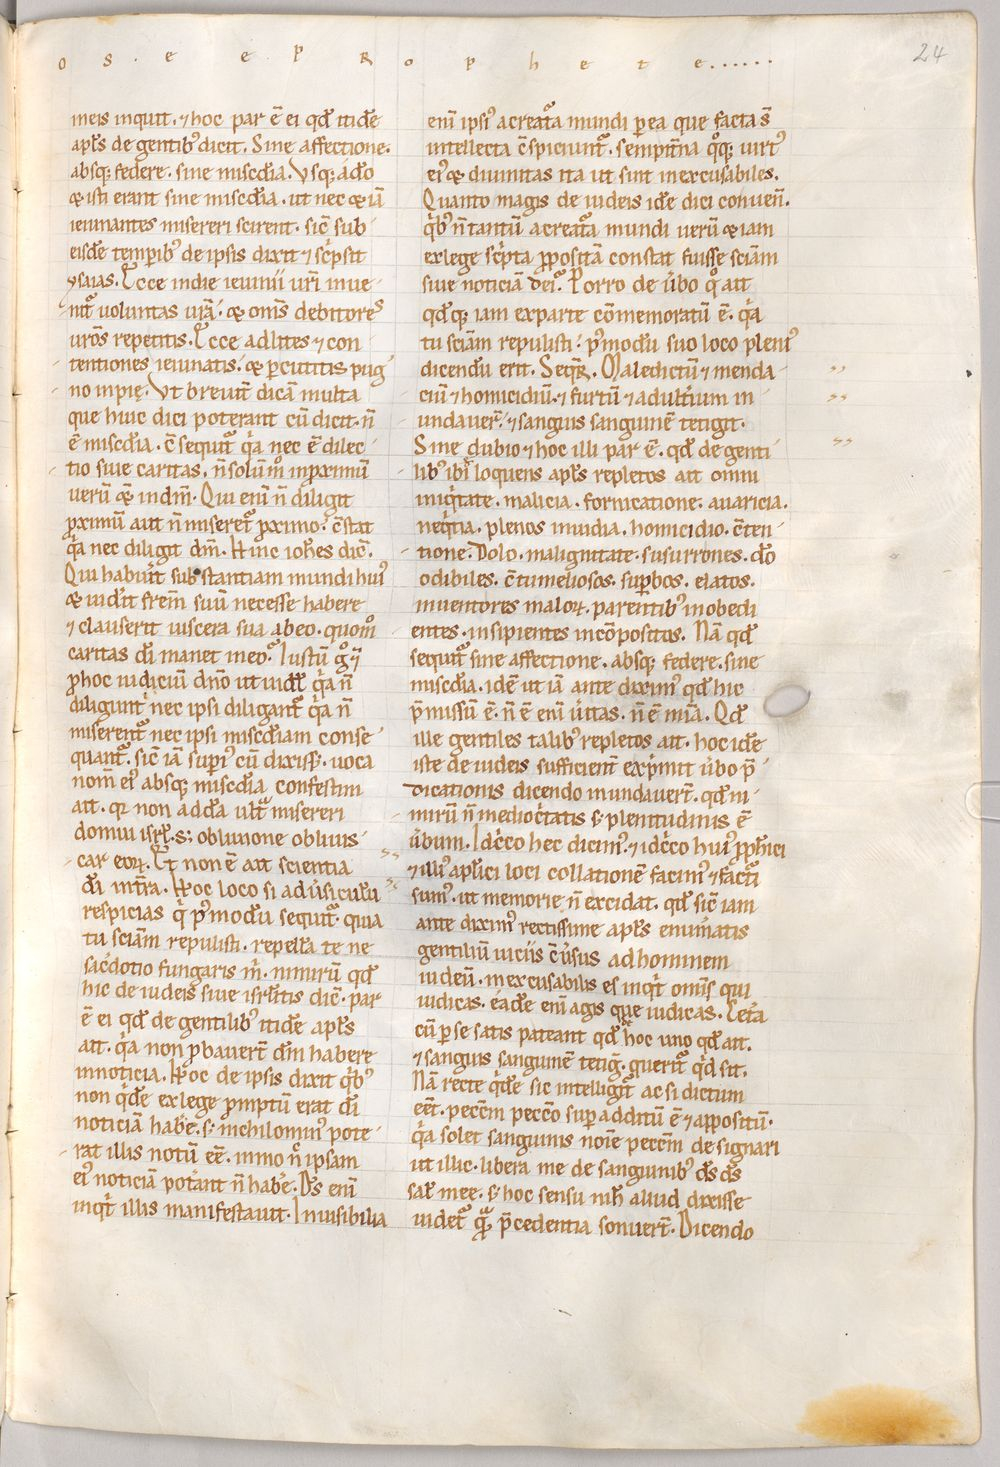 o s e e p r o p h e t e . . . . . .
24
meis inquit. ⁊ hoc par ē ei qđ itidē
apłs de gentib; dicit. Sine affectione.
absq; federe. sine miscđia. Vsq; ađo
& isti erant sine miscđia. ut nec & iā
ieiunantes misereri scirent. sic̄ sub
eisdē temporib; de ipsis dixit ⁊ sc̓psit
ysaias. Ecce in die ieiunii ur̄i inue-
nit̄ uoluntas ur̄a. & om̄s debitores
uros repetitis. Ecce ad lites ⁊ con
tentiones ieiunatis. & percutitis pug
no impię. Vt breuit̄ dicā multa
que huic dici poterant cū dicit. n̄
ē miscđia. c̄sequit̄ q̓a nec ē dilec
tio siue caritas. n̄ solū in proximū
uerū & in dm̄. Qui eni n̄ diligit
proximū aut n̄ miseret̄ proximo. c̄stat
q̓a nec diligit dm̄. Hinc ioħes dic̄.
Qui habuit̄ substantiam mundi hui᾽
& uid̓it frem̄ suū necesse habere
⁊ clauserit uiscera sua ab eo. quom̊
caritas đi manet in eo. Iustū g̊ ē
p hoc iudiciū dn̄o ut uidet̄ q̓a n̄
diligunt nec ipsi diligant̄ q̓a n̄
miserent̄ nec ipsi miscđiam conse
quant̄. sic̄ iā superi᾽ cū dixiss&. uoca
nom̄ ei᾽ absq; miscđia confestim
ait. qr non addā ult̄ misereri
domui isrł. s; obliuione obliuis-
car eoꝝ. Et non ē ait scientia
đi in tr̄a. Hoc loco si ad u̓siculū
respicias q̓ p᾽modū sequit̄. quia
tu sciām repulisti. repellā te ne
sac̓dotio fungaris m̓. nimirū qđ
hic de iudeis siue isrłitis dic̄. par
ē ei qđ de gentilib; itidē apłs
ait. q̓a non pbauert̄ đm habere
in noticia. Hoc de ipsis dixit q̓b;
non q̓dē ex lege promptū erat đi
noticiā habe᾽. s; nichilomin᾽ pote
rat illis notū eē. immo n̄ ipsam
ei᾽ noticiā pot̓ant n̄ habe᾽. Đs eni
inq̓t illis manifestauit. Inuisibilia
eni ipsi᾽ a creatura mundi per ea que facta s̄
intellecta c̄spiciunt̄. sempit̄na q̊q; uirt᾽
ei᾽ & diuinitas ita ut sint inexcusabiles.
Quanto magis de iudeis idē dici conuen̄.
q̓b; n̄ tantū a creatura mundi uerū & iam
ex lege sc̓pta propositā constat fuisse sciām
siue noticiā đei. Porro de u̓bo q̊ ait
qđ q; iam ex parte cōmemoratū ē. q̓a
tu sciām repulisti. p᾽modū suo loco pleni᾽
dicendū erit. Seqr̄. Maledictū ⁊ menda
ciū ⁊ homicidiū. ⁊ furtū ⁊ adult̓ium in
undauer̄. ⁊ sanguis sanguinē tetigit.
Sine dubio ⁊ hoc illi par ē. qđ de genti
lib; ibi loquens apłs repletos ait omni
iniq̓tate. malicia. fornicatione. auaricia.
neq̓tia. plenos inuidia. homicidio. c̄ten
tione. Dolo. malignitate. susurrones. đo
odibiles. c̄tumeliosos. superbos. elatos.
inuentores maloꝝ. parentib; inobedi
entes. insipientes incōpositos. Nā qđ
sequit̄ sine affectione. absq; federe. sine
miscđia. idē ut iā ante dixim᾽ qđ hic
p̄missū ē. n̄ ē eni u̓itas. n̄ ē mīa. Qđ
ille gentiles talib; repletos ait. hoc idē
iste de iudeis sufficient̄ exp̓mit u̓bo p̄
dicationis dicendo inundauert̄. qđ ni
mirū n̄ mediocritatis s; plenitudinis ē
u̓bum. Idc̓co hec dicim᾽. ⁊ idc̓co hui᾽ p̄phīci
⁊ illi᾽ aplīci loci collationē facim᾽ ⁊ facturi
sum᾽. ut memorie n̄ excidat. qđ sic̄ iam
ante dixim᾽ rectissime apłs enum̓atis
gentiliū uiciis c̄u̓sus ad hominem
iudeū. inexcusabilis es inq̓t om̄is qui
iudicas. eadē eni agis que iudicas. Cet̓a
cū per se satis pateant qđ hoc uno qđ ait.
⁊ sanguis sanguinē tetig̓. querit̄ q̓d sit.
Nā recte q̓dē sic intelligit̄ ac si dictum
eēt. peccm̄ pecc̄o super additū ē ⁊ appositū.
q̓a solet sanguinis noīe peccm̄ designari
ut illic. libera me de sanguinib; đs đs
sał mee. s; hoc sensu nih̓ aliud dixisse
uidet̄ quā p̄cedentia sonuert̄. Dicendo